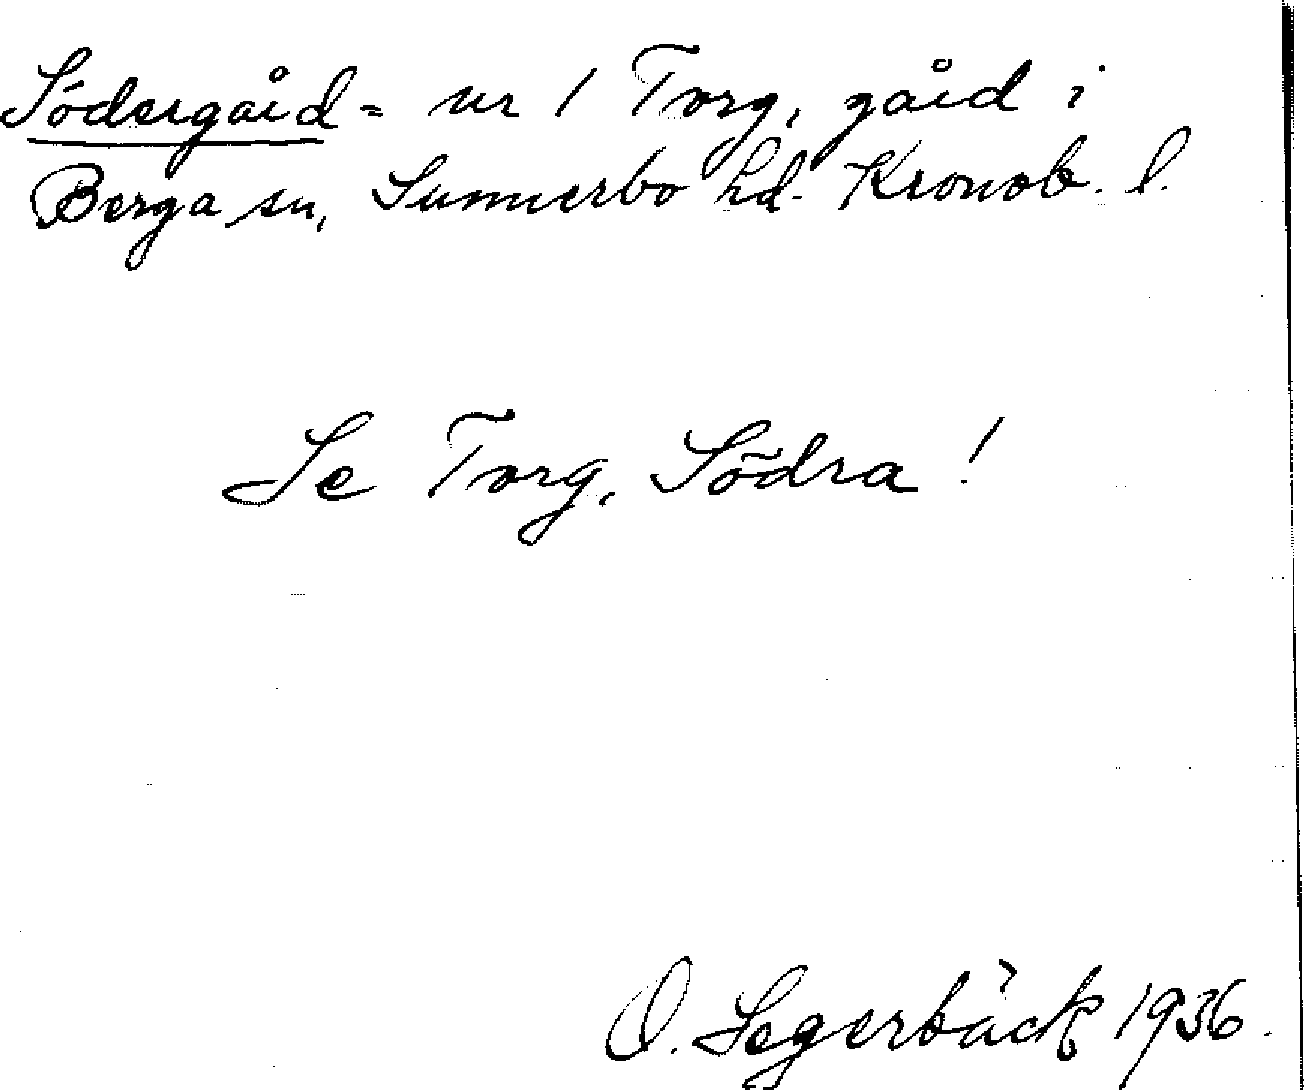 Södergård = nr 1 Torg, gård i
Berga sn, Sunnerbo hd. Kronob. l.
Se Torg, Södra!
O. Segerbäck 1936.